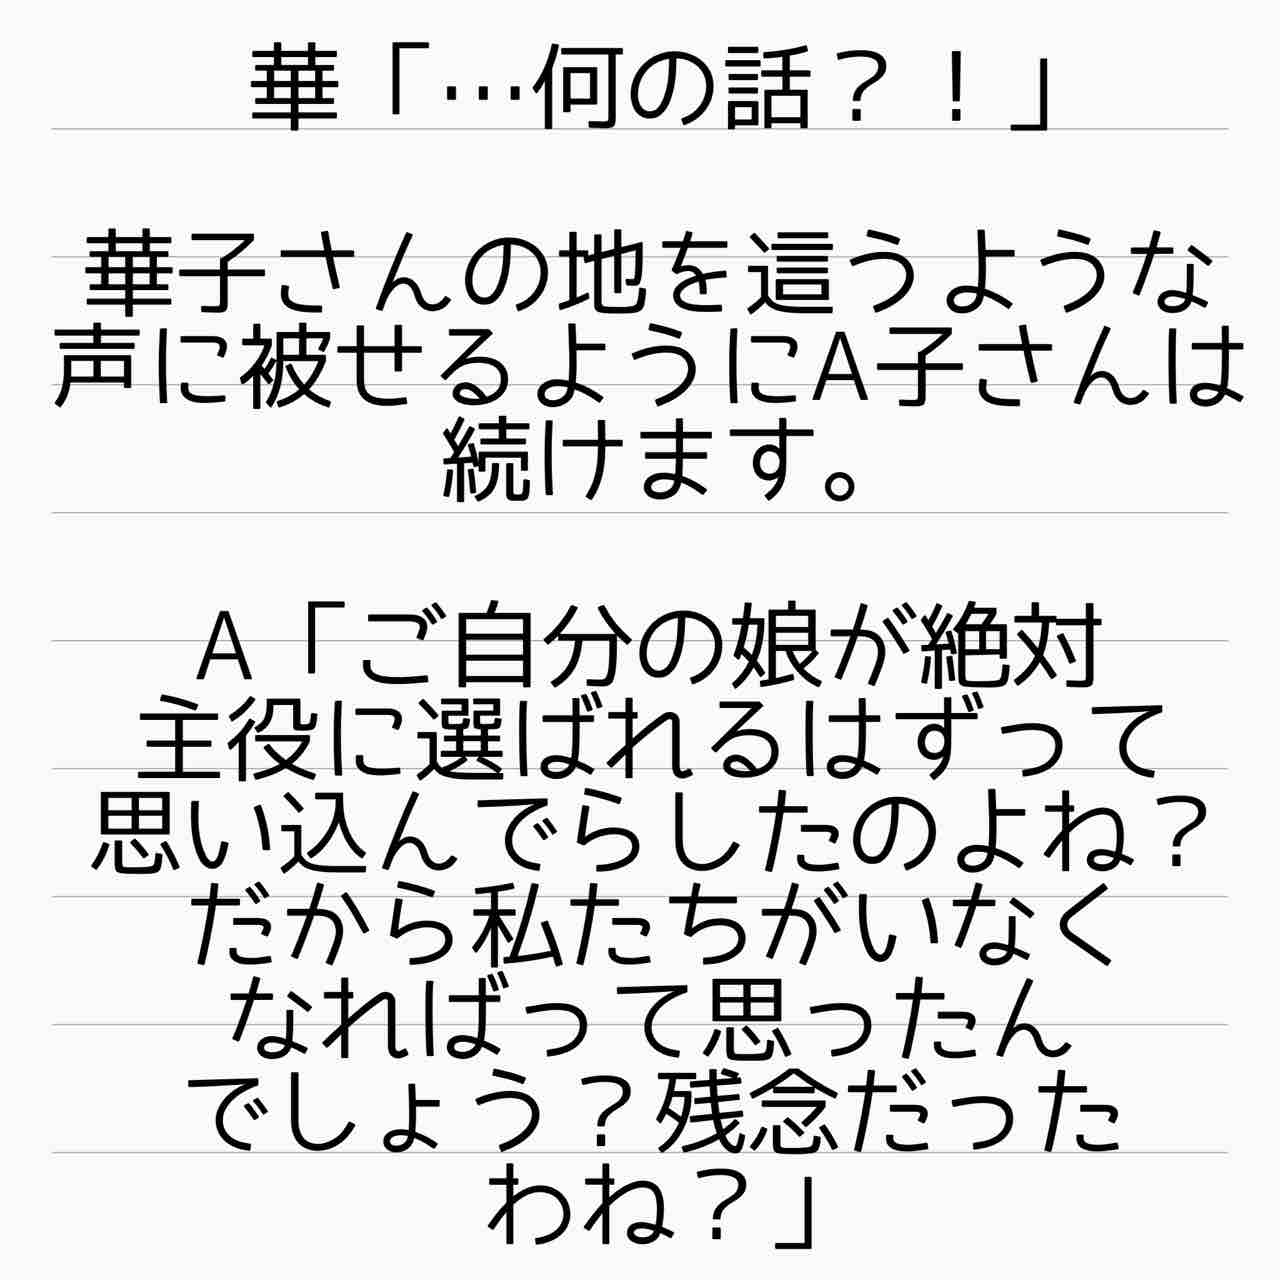 華「…何の話？！」
華子さんの地を這うような
声に被せるようにA子さんは
続けます。
A「ご自分の娘が絶対
主役に選ばれるはずって
思い込んでらしたのよね？
だから私たちがいなく
なればって思ったん
でしょう？残念だった
わね？」